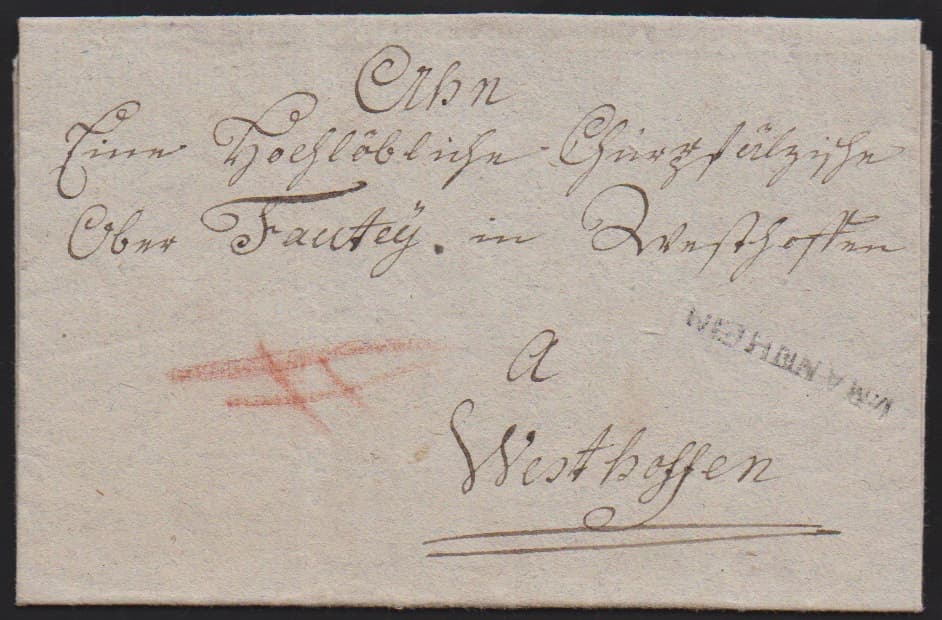 Ahn
Eine Hochlöbliche Churpfältzische
Ober Fautey. in Westhoffen
V:MANNHEIM
a
Westhoffen